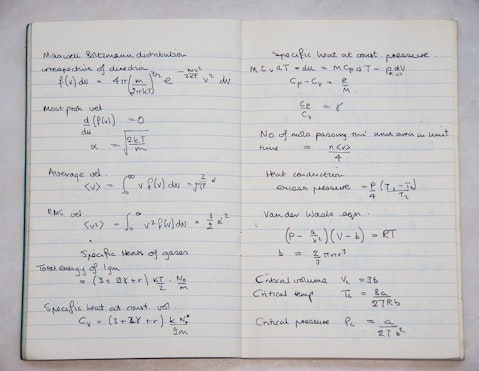 Maxwell Boltzmann distribution
irrespective of direction
f(v) dv = 4π (m/2πkT)^3/2 e^-mv²/2kT v² dv
Most prob. vel
d/dv (f(v)) = 0
α = √(2kT/m)
Average vel.
<v> = ∫₀^∞ v f(v) dv = 2/√π α
RMS vel
<v²> = ∫₀^∞ v² f(v) dv = 3/2 α²
Specific Heats of gases
Total energy of 1gm
= (3+2γ+r) kT/2 · N₀/m
Specific heat at const. vol.
Cv = (3+2γ+r) k N₀/2m
Specific heat at const. pressure.
m Cv dT = du = m Cp dT - p dV
Cp - Cv = R/M
Cp/Cv = γ
No of mols passing thro' unit area in unit
time = n<v>/4
Heat conduction
excess pressure = P/4
Van der Waals eqn.
(P - a/v²)(V - b) = RT
b = 2/3 π n r³
Critical volume Vc = 3b
Critical temp Tc = 8a/27Rb
Critical pressure Pc = a/27b²